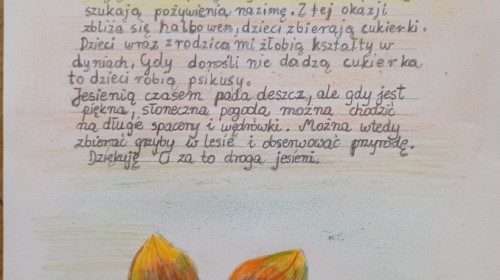 szukają pożywienia nazimę. Z tej okazji
zbliża się halbowen, dzieci zbierają cukierki.
Dzieci wraz zrodzica mi żłobią kształty w
dyniach, Gdy dorośli nie dadzą cukierka
to dzieci robią psikusy.
Jesienią czasem pada deszcz, ale gdy jest
piękna, słoneczna pogoda można chodzić
na długie spacery i wędrówki. Można wtedy
zbierać grzyby w lesie i obserwować przyrodę.
Dziękuję Ci za to droga jesieni.